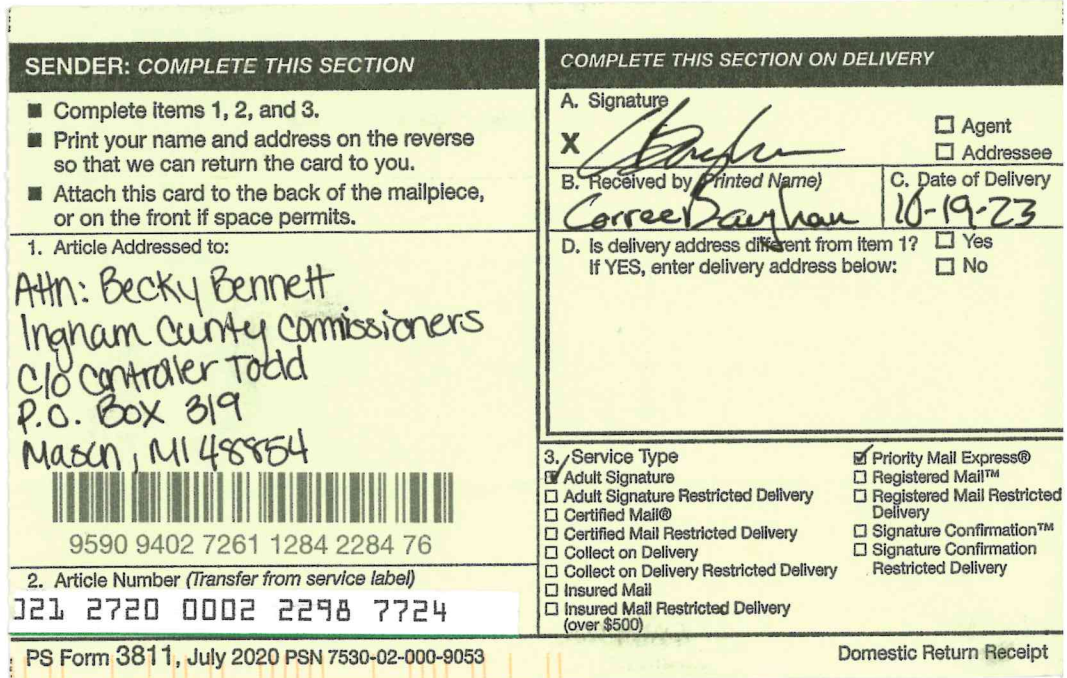 SENDER: COMPLETE THIS SECTION
■ Complete items 1, 2, and 3.
■ Print your name and address on the reverse
so that we can return the card to you.
■ Attach this card to the back of the mailpiece,
or on the front if space permits.
1. Article Addressed to:
Attn: Becky Bennett
Ingham County Commissioners
C/o Controller Todd
P.O. Box 319
Mason, MI 48854
9590 9402 7261 1284 2284 76
2. Article Number (Transfer from service label)
021 2720 0002 2298 7724
PS Form 3811, July 2020 PSN 7530-02-000-9053
COMPLETE THIS SECTION ON DELIVERY
A. Signature
X
☐ Agent
☐ Addressee
B. Received by (Printed Name)
Corree Baughan
C. Date of Delivery
10-19-23
D. Is delivery address different from item 1? ☐ Yes
If YES, enter delivery address below: ☐ No
3. Service Type
☑ Adult Signature
☐ Adult Signature Restricted Delivery
☐ Certified Mail®
☐ Certified Mail Restricted Delivery
☐ Collect on Delivery
☐ Collect on Delivery Restricted Delivery
☐ Insured Mail
☐ Insured Mail Restricted Delivery
(over $500)
☑ Priority Mail Express®
☐ Registered Mail™
☐ Registered Mail Restricted
Delivery
☐ Signature Confirmation™
☐ Signature Confirmation
Restricted Delivery
Domestic Return Receipt